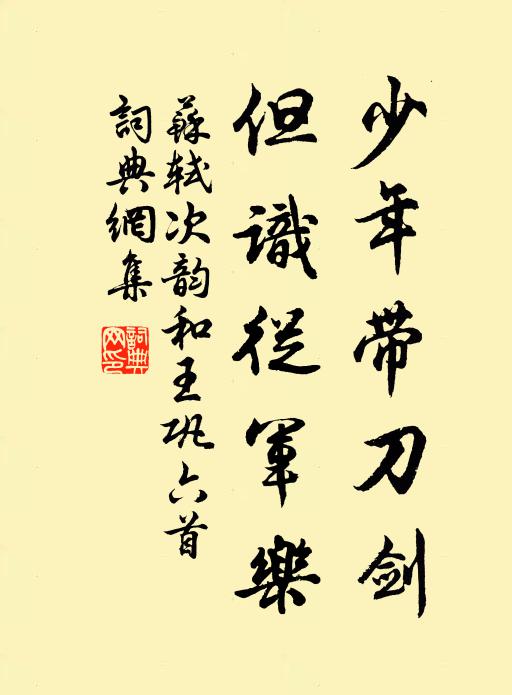 少年带刀剑
但識從軍樂
蘇軾次韵和王巩六首
詞典網集
詞典網印